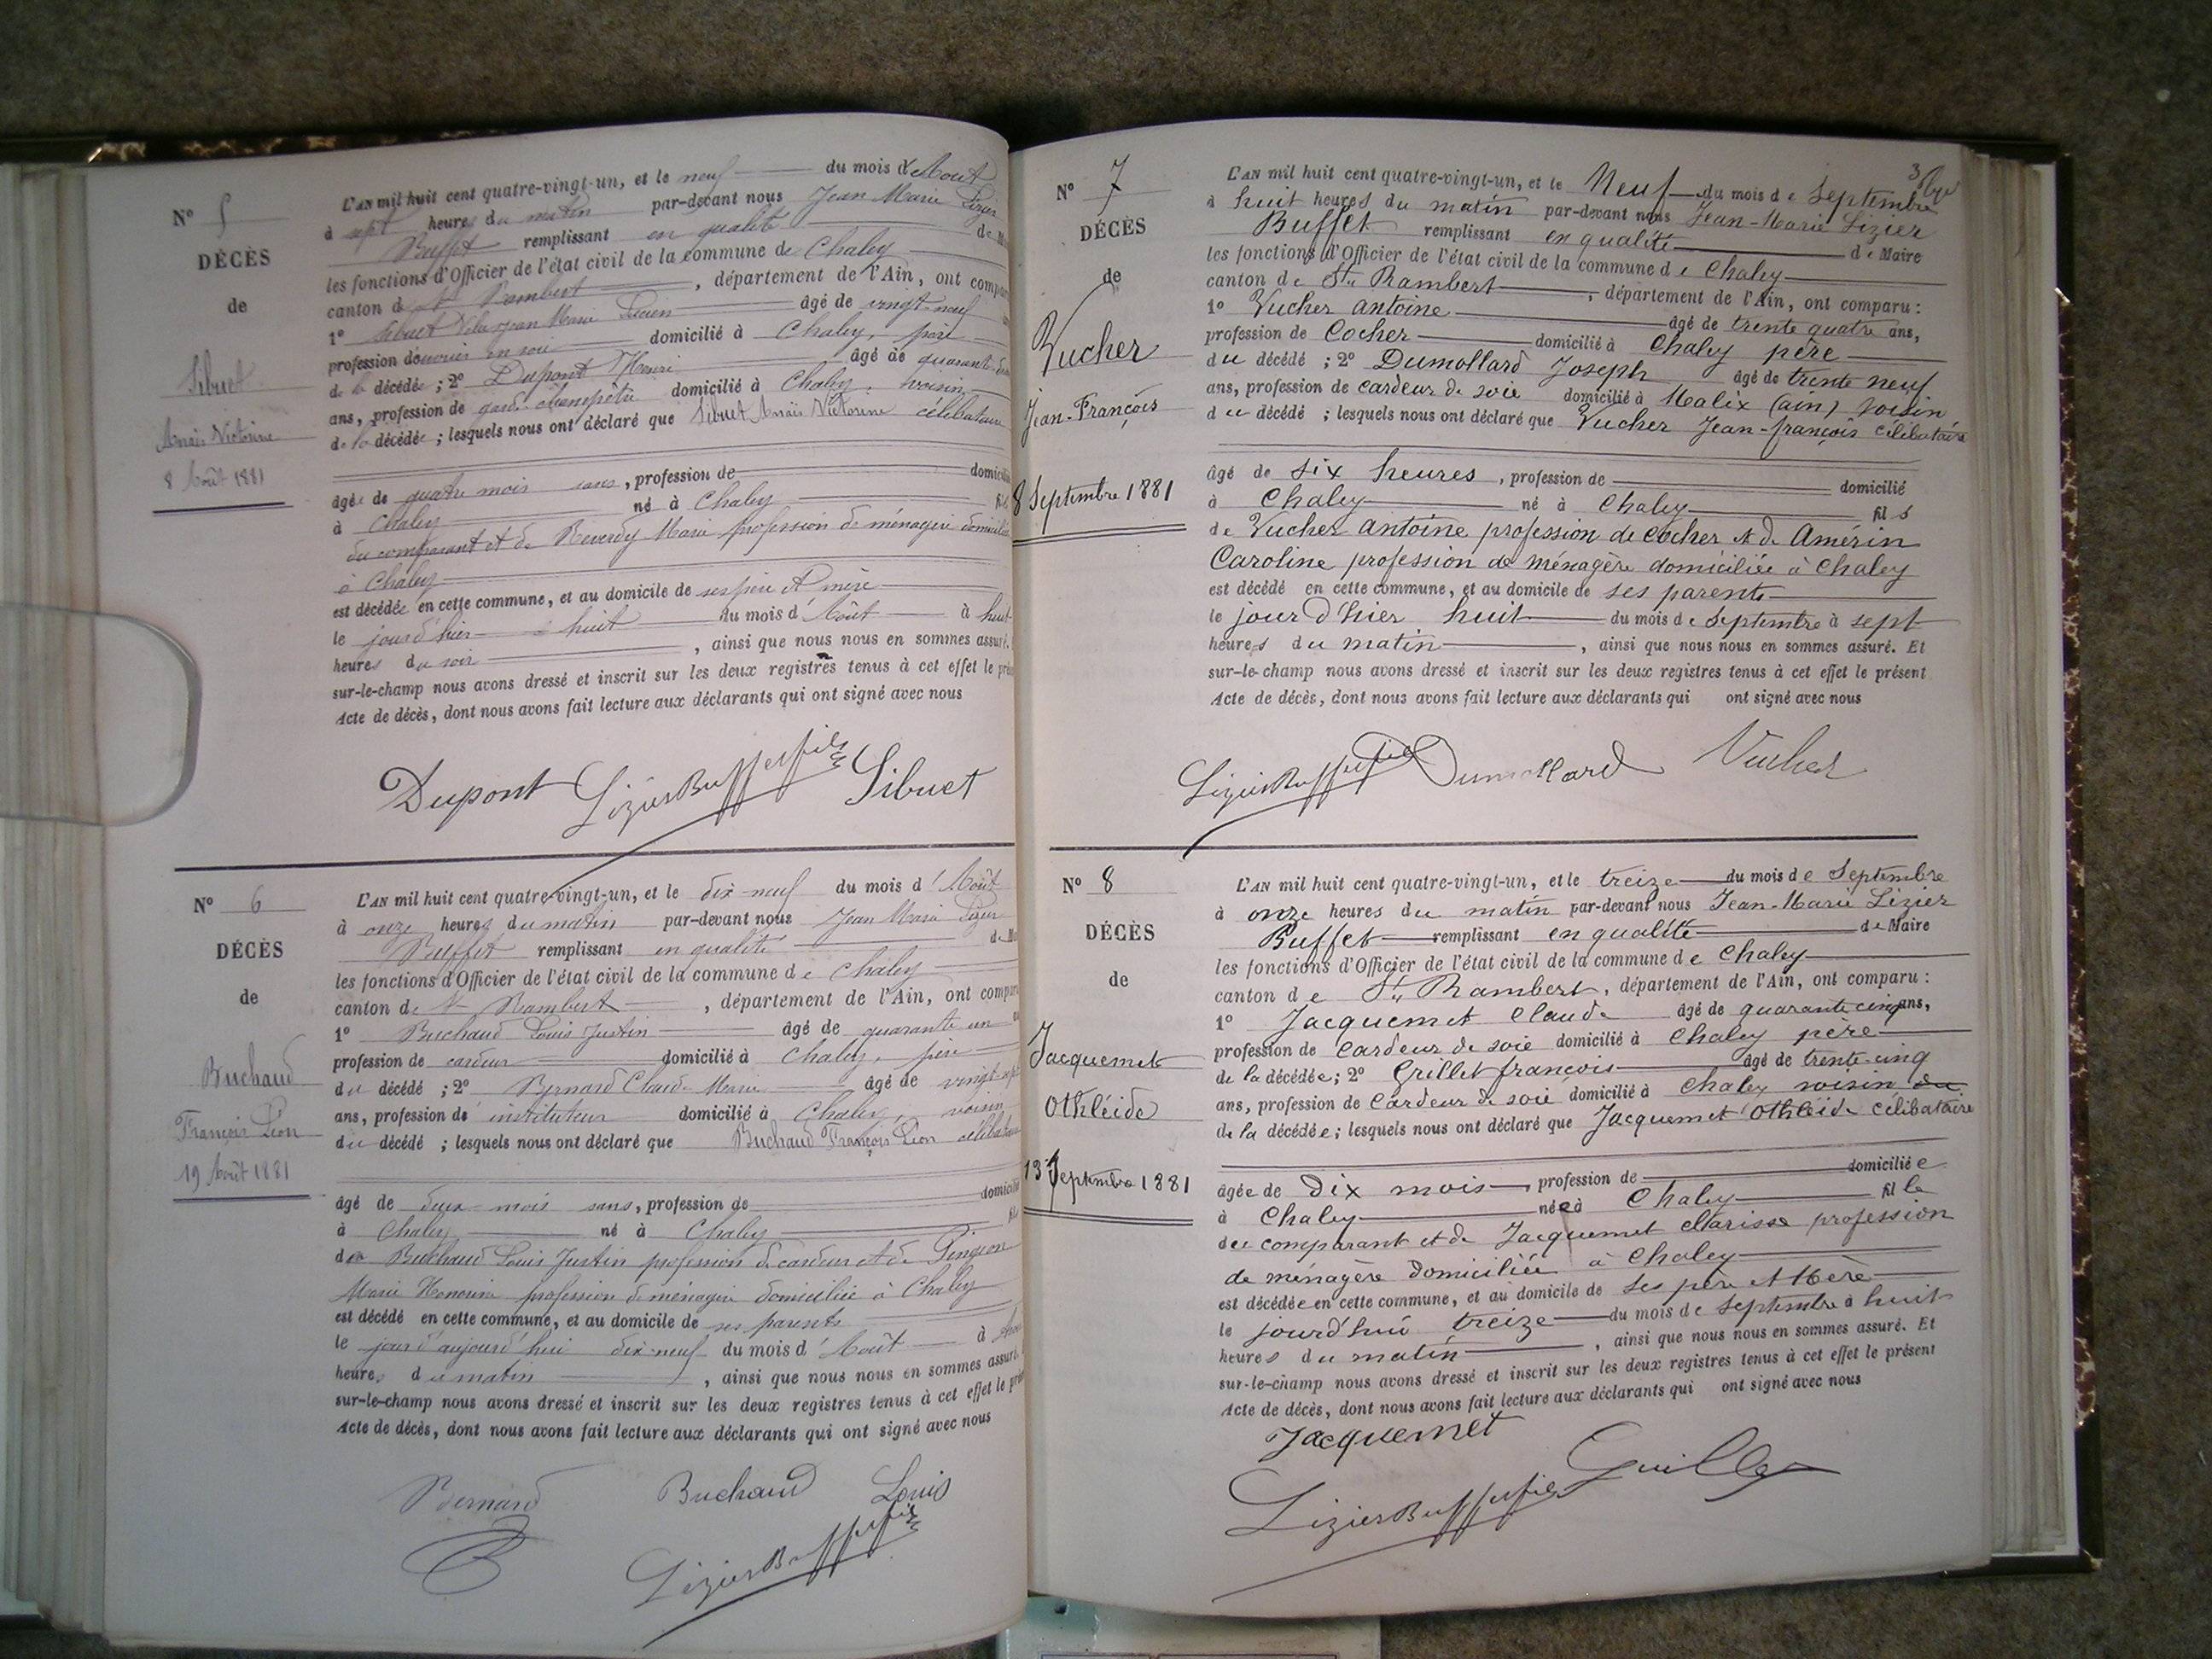 N° 5
DÉCÈS
de
Sibuet
Anaïs Victorine
8 Août 1881
L'AN mil huit cent quatre-vingt-un, et le neuf du mois d'Août
à sept heures du matin par-devant nous Jean Marie Lizier
Buffet remplissant en qualité de
les fonctions d'Officier de l'état civil de la commune de Chaley
canton de St Rambert, département de l'Ain, ont
1° Sibuet Jean Marie Lucien âgé de vingt-neuf
profession d'ouvrier en soie domicilié à Chaley, père
de la décédée ; 2° Dupont Henri âgé de
ans, profession de garde champêtre domicilié à Chaley, voisin
de la décédée ; lesquels nous ont déclaré que Sibuet Anaïs Victorine célibataire
âgée de quatre mois sans, profession de
à Chaley né à Chaley
du comparant et de Reverdy Marie profession de ménagère domiciliée
à Chaley
est décédée en cette commune, et au domicile de ses père et mère
le jour d'hier huit du mois d'Août à huit
heures du soir, ainsi que nous nous en sommes assuré.
sur-le-champ nous avons dressé et inscrit sur les deux registres tenus à cet effet le
Acte de décès, dont nous avons fait lecture aux déclarants qui ont signé avec nous
Dupont LizierBuffet fils Sibuet
N° 6
DÉCÈS
de
Buchaud
François Léon
19 Août 1881
L'AN mil huit cent quatre-vingt-un, et le dix-neuf du mois d'Août
à onze heures du matin par-devant nous Jean Marie Lizier
Buffet remplissant en qualité de
les fonctions d'Officier de l'état civil de la commune de Chaley
canton de St Rambert, département de l'Ain, ont
1° Buchaud Louis Justin âgé de quarante un
profession de cardeur domicilié à Chaley, père
du décédé ; 2° Bernard Claude Marie âgé de
ans, profession de instituteur domicilié à Chaley, voisin
du décédé ; lesquels nous ont déclaré que Buchaud François Léon célibataire
âgé de deux mois sans, profession de
à Chaley né à Chaley
de Buchaud Louis Justin profession de cardeur et de Pingeon
Marie Honorine profession de ménagère domiciliée à Chaley
est décédé en cette commune, et au domicile de ses parents
le jour d'aujourd'hui dix-neuf du mois d'Août à
heures du matin, ainsi que nous nous en sommes assuré.
sur-le-champ nous avons dressé et inscrit sur les deux registres tenus à cet effet le
Acte de décès, dont nous avons fait lecture aux déclarants qui ont signé avec nous
Bernard Buchaud Louis
LizierBuffet fils
3
N° 7
DÉCÈS
de
Vucher
Jean-François
8 Septembre 1881
L'AN mil huit cent quatre-vingt-un, et le Neuf du mois de Septembre
à huit heures du matin par-devant nous Jean-Marie Lizier
Buffet remplissant en qualité de Maire
les fonctions d'Officier de l'état civil de la commune de Chaley
canton de St Rambert, département de l'Ain, ont comparu :
1° Vucher antoine âgé de trente quatre ans,
profession de Cocher domicilié à Chaley père
du décédé ; 2° Dumollard Joseph âgé de trente neuf
ans, profession de cardeur de soie domicilié à Malix (ain) voisin
du décédé ; lesquels nous ont déclaré que Vucher Jean-françois célibataire
âgé de six heures, profession de domicilié
à Chaley né à Chaley fils
de Vucher antoine profession de cocher et de Amérin
Caroline profession de ménagère domiciliée à Chaley
est décédé en cette commune, et au domicile de ses parents
le jour d'hier huit du mois de Septembre à sept
heures du matin, ainsi que nous nous en sommes assuré. Et
sur-le-champ nous avons dressé et inscrit sur les deux registres tenus à cet effet le présent
Acte de décès, dont nous avons fait lecture aux déclarants qui ont signé avec nous
LizierBuffet fils Dumollard Vucher
N° 8
DÉCÈS
de
Jacquemet
Othléide
13 Septembre 1881
L'AN mil huit cent quatre-vingt-un, et le treize du mois de Septembre
à onze heures du matin par-devant nous Jean-Marie Lizier
Buffet remplissant en qualité de Maire
les fonctions d'Officier de l'état civil de la commune de Chaley
canton de St Rambert, département de l'Ain, ont comparu :
1° Jacquemet Claude âgé de quarante cinq ans,
profession de Cardeur de soie domicilié à Chaley père
de la décédée ; 2° Grillet françois âgé de trente-cinq
ans, profession de Cardeur de soie domicilié à Chaley voisin du
de la décédée ; lesquels nous ont déclaré que Jacquemet Othléide célibataire
âgée de Dix mois, profession de domiciliée
à Chaley née à Chaley fille
du comparant et de Jacquemet Clarisse profession
de ménagère domiciliée à Chaley
est décédée en cette commune, et au domicile de ses père et Mère
le jourd'hui treize du mois de Septembre à huit
heures du matin, ainsi que nous nous en sommes assuré. Et
sur-le-champ nous avons dressé et inscrit sur les deux registres tenus à cet effet le présent
Acte de décès, dont nous avons fait lecture aux déclarants qui ont signé avec nous
Jacquemet
LizierBuffet fils